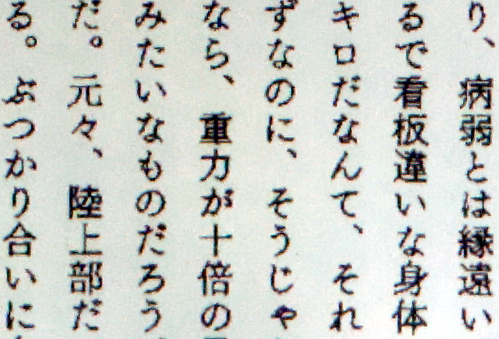 り、病弱とは縁遠い
るで看板違いな身体
キロだなんて、それ
ずなのに、そうじゃ
なら、重力が十倍の
みたいなものだろう
だ。元々、陸上部だ
る。ぶつかり合いに